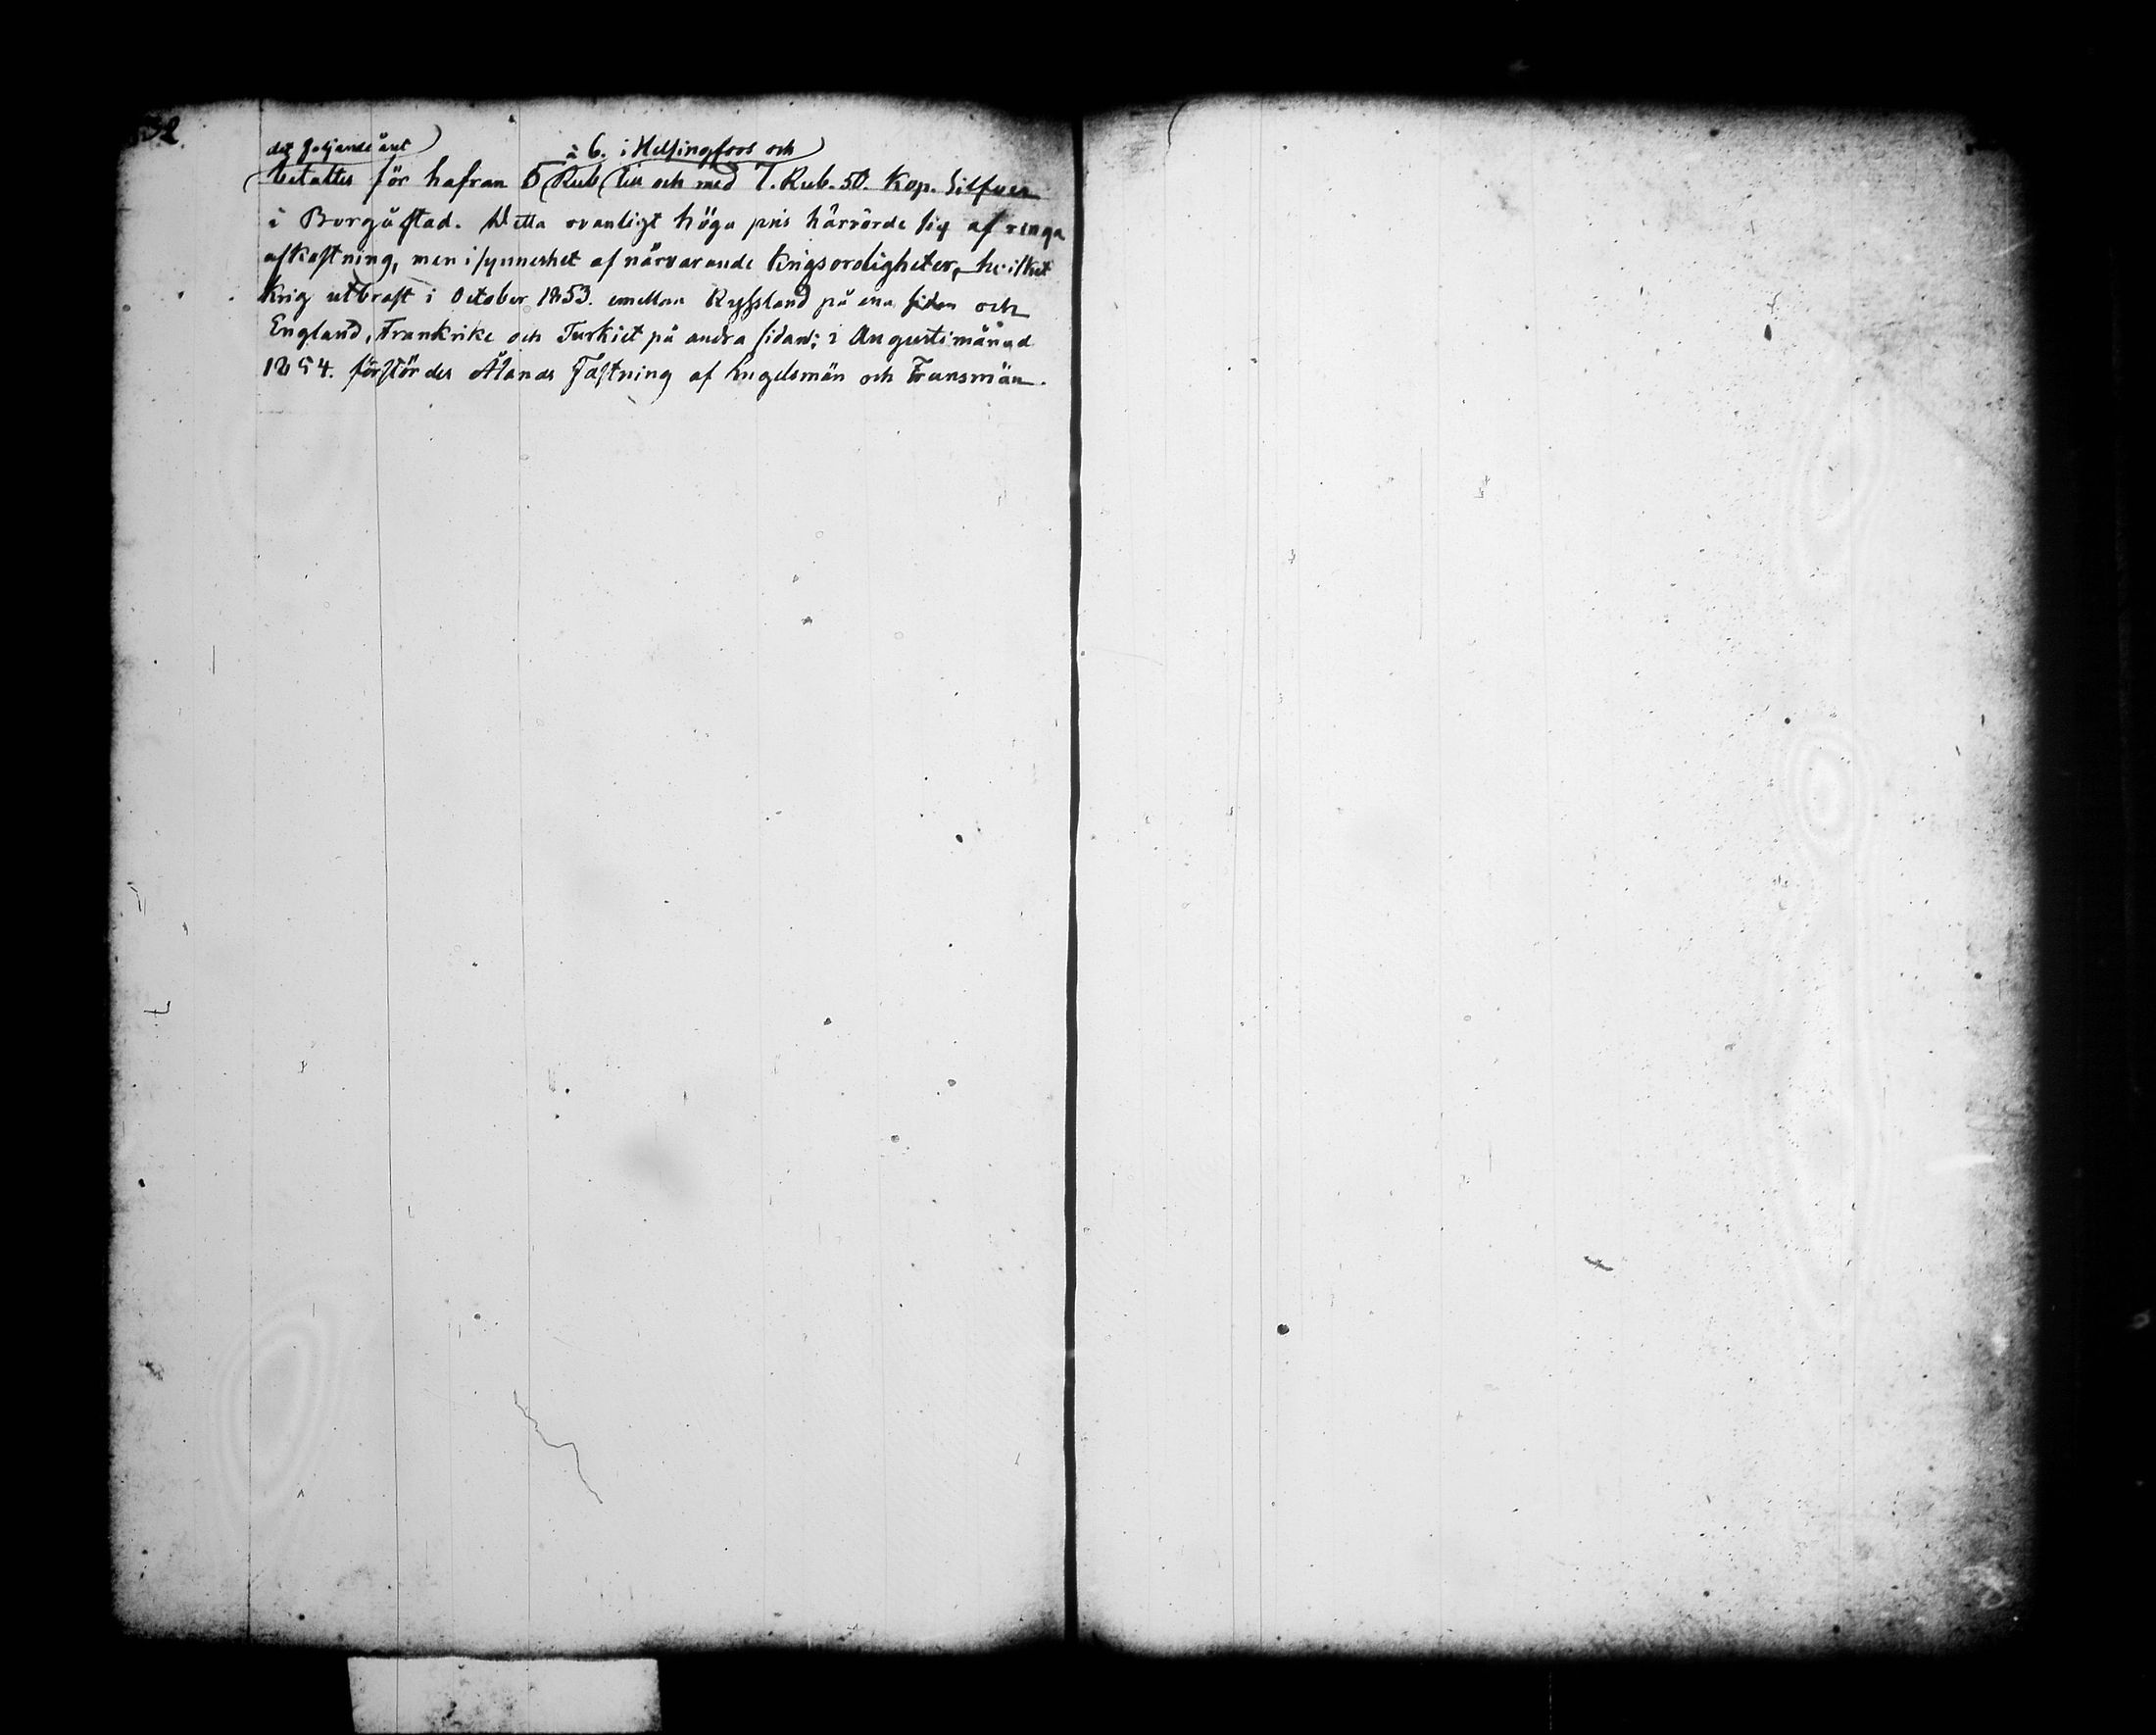 det följande året à 6. i Helsingfors och
betaltes för hafran 5 Rub till och med 7. Rub. 50. Kop. Silfver
i Borgå stad. Detta ovanligt höga pris härrörde sig af ringa
afkastning, men i synnerhet af närvarande krigsoroligheter, hvilket
krig utbrast i October 1853. emellan Ryssland på ena sidan och
England, Frankrike och Turkiet på andra sidan; i Augusti månad
1854. förstördes Ålands Fästning af Engelsmän och Fransmän.